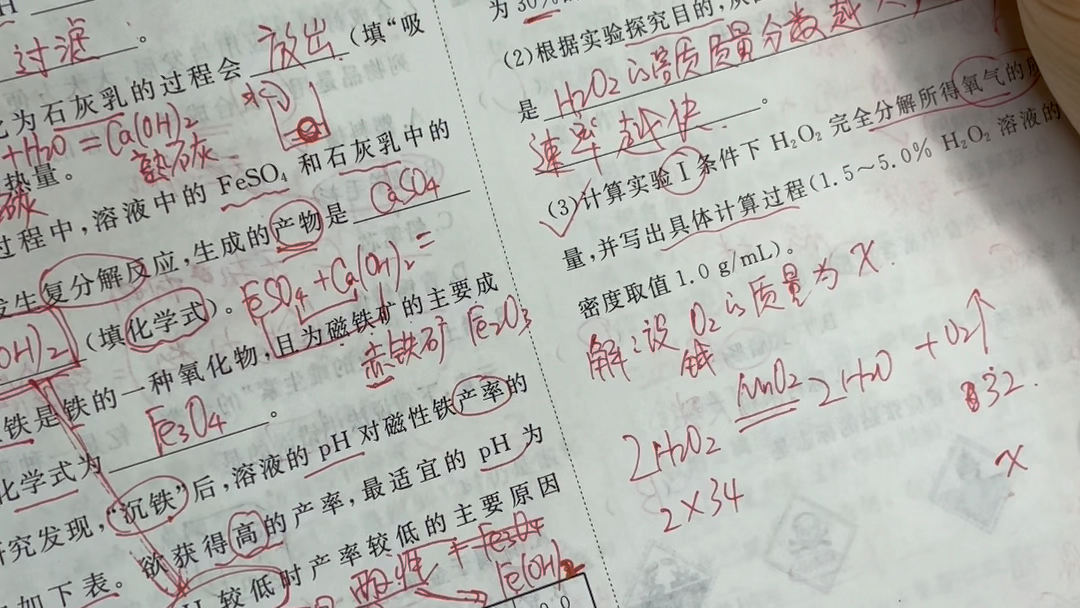 过滤。
化为石灰乳的过程会 放出 (填“吸
+H₂O = Ca(OH)₂
热量。
熟石灰
过程中,溶液中的 FeSO₄ 和石灰乳中的
发生复分解反应,生成的产物是 CaSO₄
(OH)₂ (填化学式)。 FeSO₄ + Ca(OH)₂ =
铁是铁的一种氧化物,且为磁铁矿的主要成
赤铁矿 Fe₂O₃
化学式为 Fe₃O₄ 。
研究发现,“沉铁”后,溶液的 pH 对磁性铁产率的
如下表。欲获得高的产率,最适宜的 pH 为
较低时产率较低的主要原因
酸性 + Fe₃O₄
Fe(OH)₂
为 30%
(2)根据实验探究目的,
是 H₂O₂的溶质质量分数越大,
速率越快 。
(3)计算实验Ⅰ条件下 H₂O₂ 完全分解所得氧气的质
量,并写出具体计算过程(1.5~5.0% H₂O₂ 溶液的
密度取值 1.0 g/mL)。
解:设 O₂的质量为 x.
2H₂O₂ MnO₂ 2H₂O + O₂↑
2×34 32
x